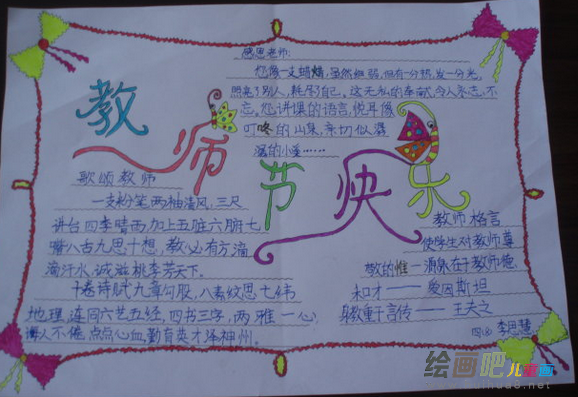 教师节快乐
感恩老师:
您像一支蜡烛,虽然细弱,但有一分热,发一分光,
照亮了别人,耗尽了自己。这无私的奉献,令人永志不
忘。您讲课的语言,悦耳像
叮咚的山泉,亲切似潺
潺的小溪……
歌颂教师
一支粉笔,两袖清风,三尺
讲台四季晴雨,加上五脏六腑七
嘴八舌九思十想,教必有方滴
滴汗水,诚滋桃李芳天下。
十卷诗赋,九章勾股,八索纹思七纬
地理,连同六艺五经,四书三字,两雅一心,
诲人不倦,点点心血,勤育英才泽神州。
教师格言
使学生对教师尊
敬的惟一源泉在于教师德
和才——爱因斯坦
身教重于言传——王夫之
绘画吧 儿童画